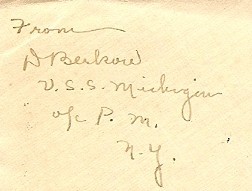 From
D Berkow
U.S.S. Michigan
o/c P. M.
N.Y.